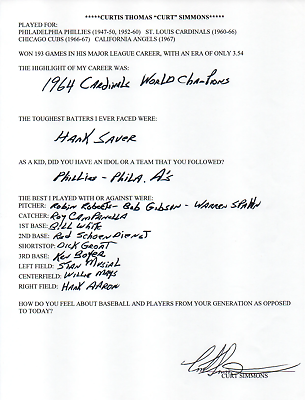 *****CURTIS THOMAS "CURT" SIMMONS*****
PLAYED FOR:
PHILADELPHIA PHILLIES (1947-50, 1952-60) ST. LOUIS CARDINALS (1960-66)
CHICAGO CUBS (1966-67) CALIFORNIA ANGELS (1967)
WON 193 GAMES IN HIS MAJOR LEAGUE CAREER, WITH AN ERA OF ONLY 3.54
THE HIGHLIGHT OF MY CAREER WAS:
1964 Cardinals World Champions
THE TOUGHEST BATTERS I EVER FACED WERE:
Hank Sauer
AS A KID, DID YOU HAVE AN IDOL OR A TEAM THAT YOU FOLLOWED?
Phillies - Phila. A's
THE BEST I PLAYED WITH OR AGAINST WERE:
PITCHER: Robin Roberts - Bob Gibson - Warren Spahn
CATCHER: Roy Campanella
1ST BASE: Bill White
2ND BASE: Red Schoendienst
SHORTSTOP: Dick Groat
3RD BASE: Ken Boyer
LEFT FIELD: Stan Musial
CENTERFIELD: Willie Mays
RIGHT FIELD: Hank Aaron
HOW DO YOU FEEL ABOUT BASEBALL AND PLAYERS FROM YOUR GENERATION AS OPPOSED
TO TODAY?
Curt Simmons
CURT SIMMONS